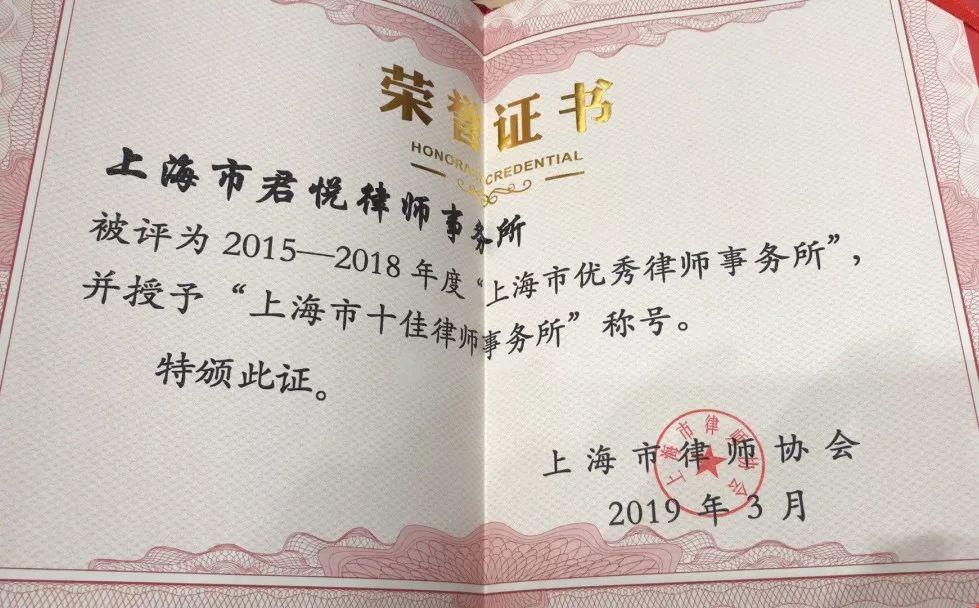 荣誉证书
HONORARY CREDENTIAL
上海市君悦律师事务所
被评为 2015—2018 年度“上海市优秀律师事务所”，
并授予“上海市十佳律师事务所”称号。
特颁此证。
上海市律师协会
上海市律师协会
2019 年 3 月